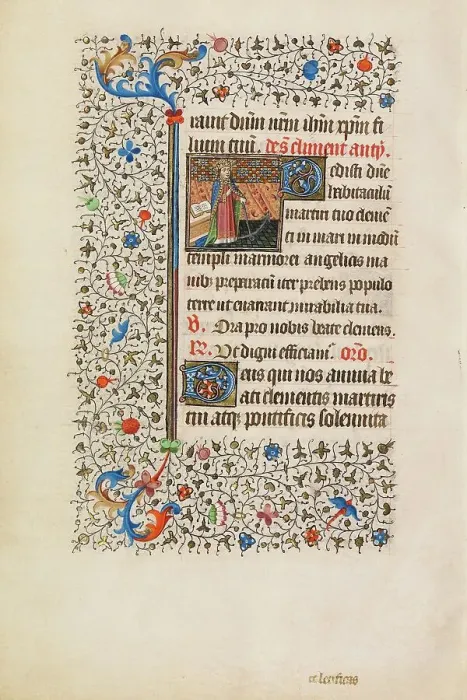 rauit dn̄m nr̄m ihm̄ xp̄m fi
lium tuū. de s̄ climent anty̾.
Dedisti dn̄e
habitaculū
martiri tuo clemē
ti in mari in modū
templi marmorei angelicis ma
nibꝫ preparatū iter prebens populo
terre ut enarrant mirabilia tua.
V. Ora pro nobis beate clemens.
R. Vt digni efficiam̾. or̄o.
Deus qui nos annua be
ati clementis martiris
tui atqꝫ pontificis solennita
te letificas